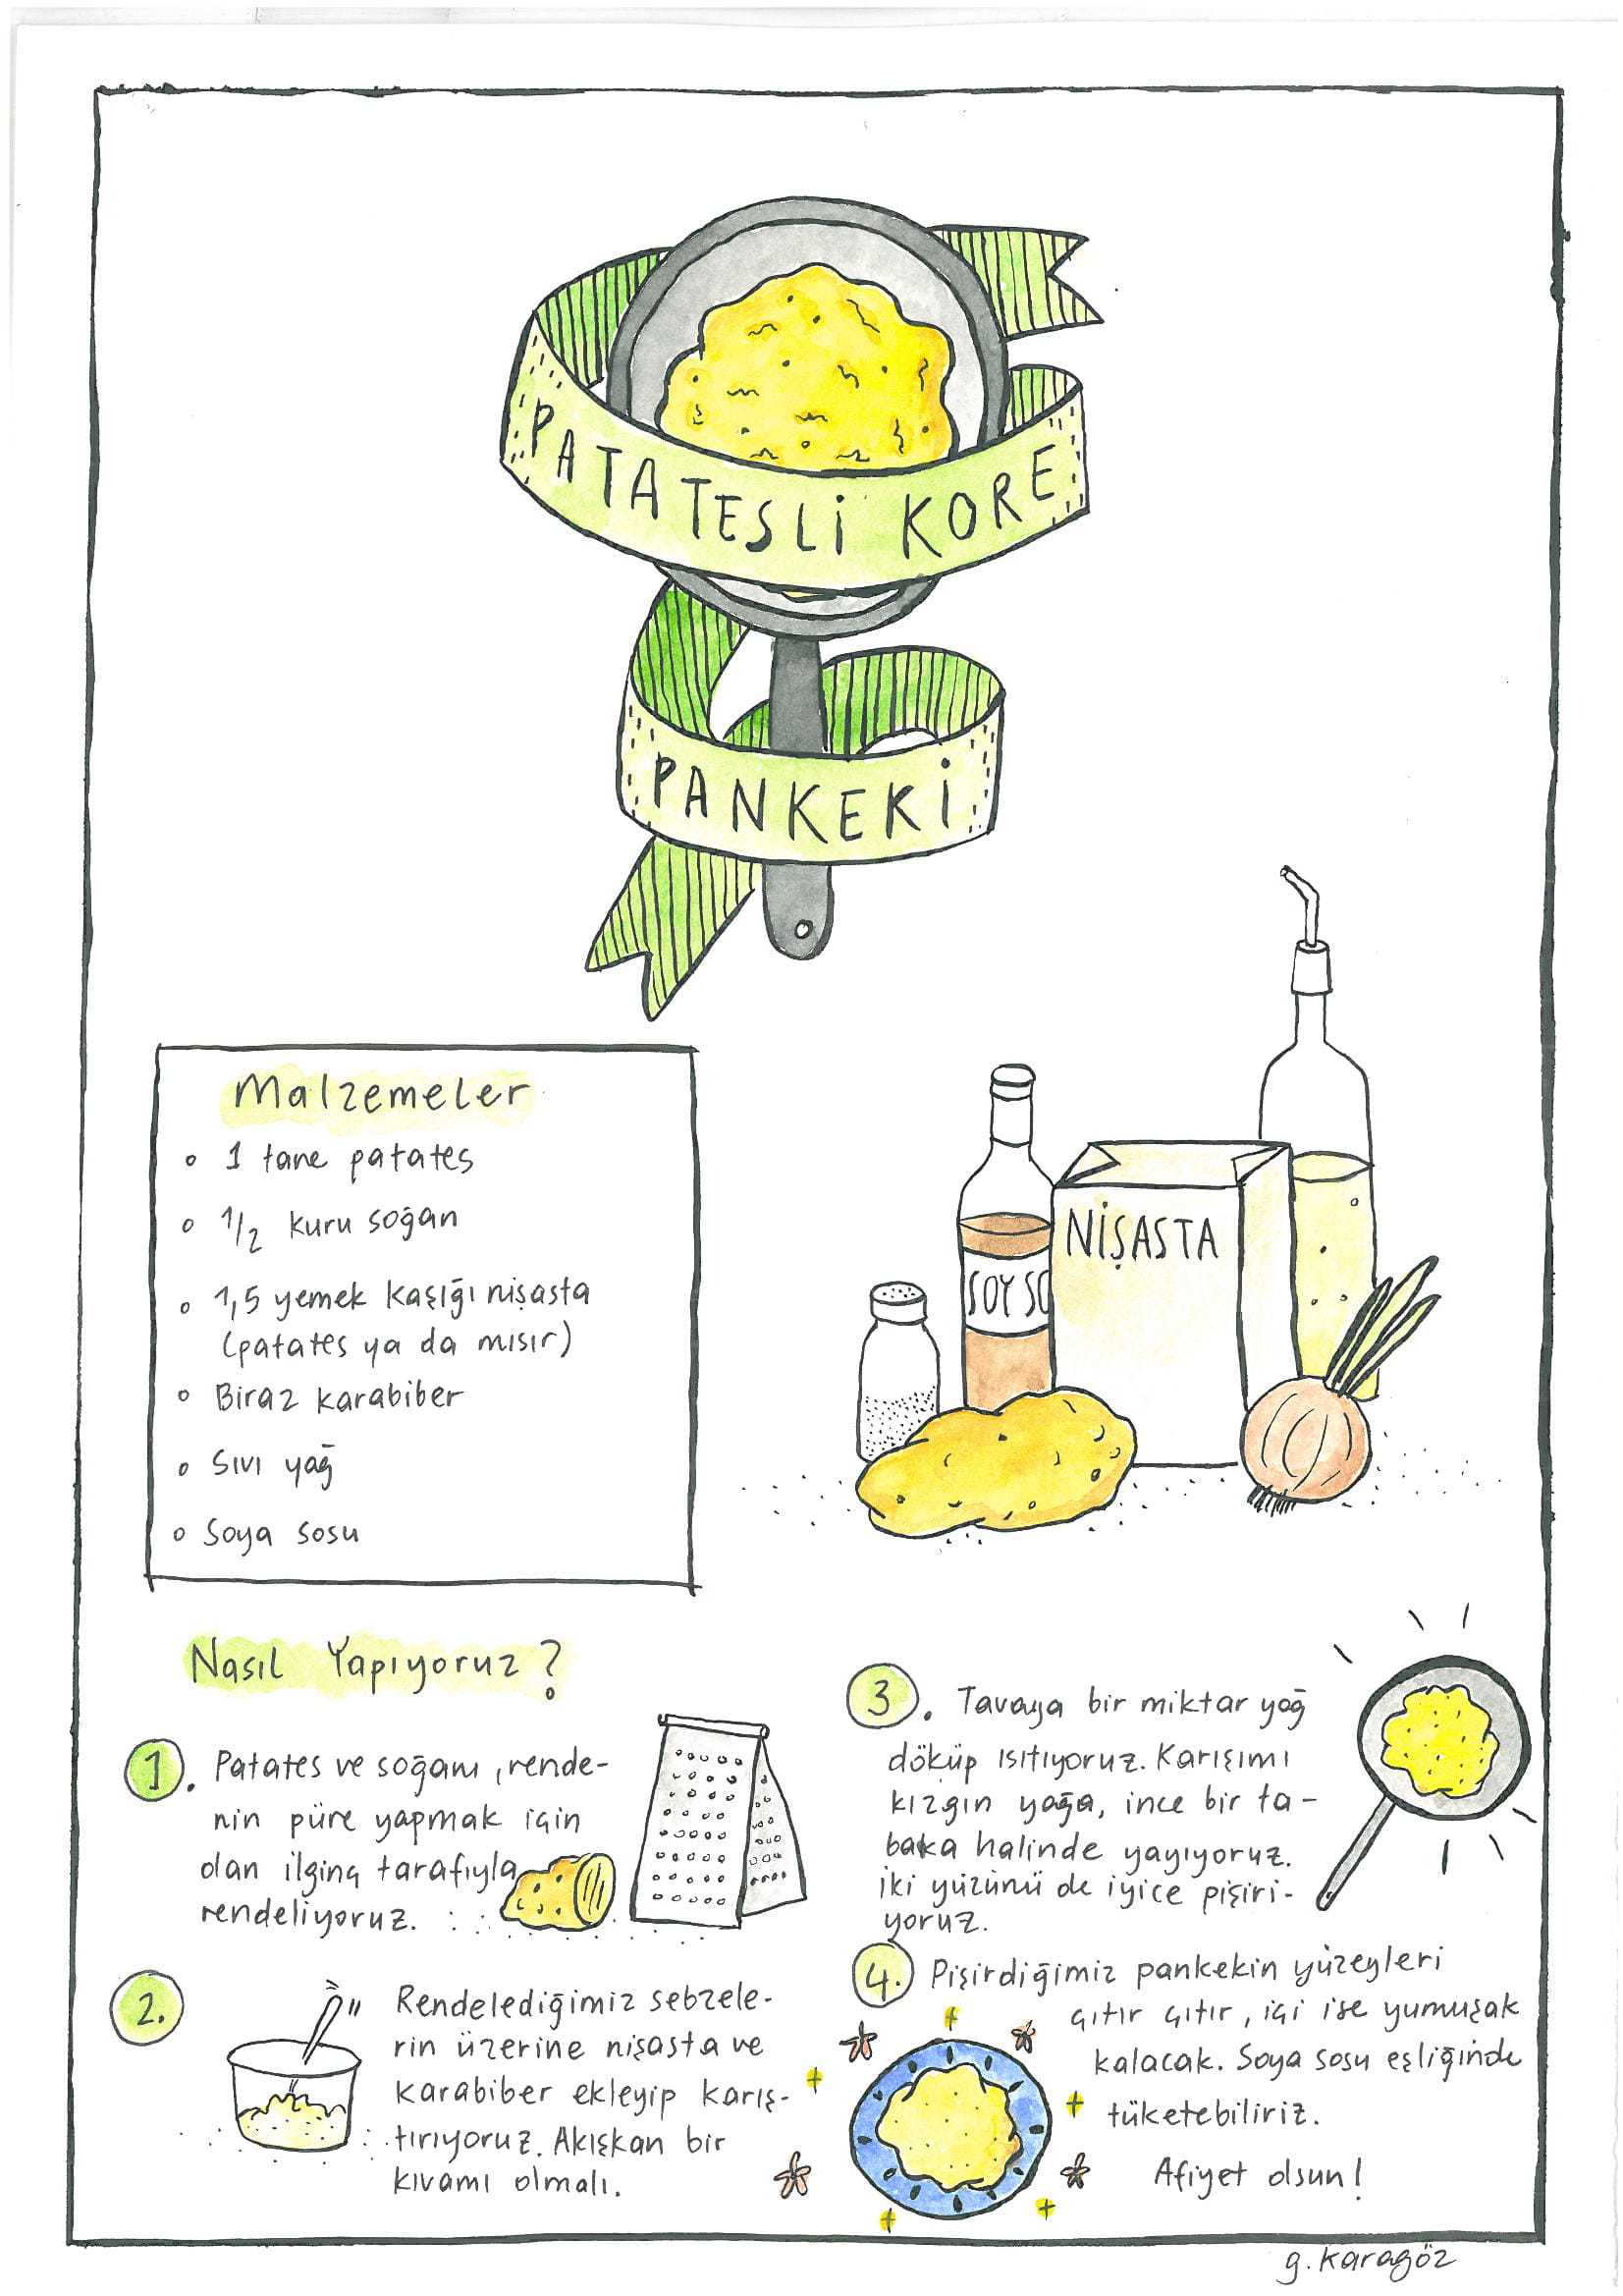 PATATESLİ KORE
PANKEKİ
Malzemeler
1 tane patates
1/2 kuru soğan
1,5 yemek kaşığı nişasta
(patates ya da mısır)
Biraz karabiber
Sıvı yağ
Soya sosu
SOY SO
NİŞASTA
Nasıl Yapıyoruz?
1. Patates ve soğanı, rende-
nin püre yapmak için
olan ilginç tarafıyla
rendeliyoruz.
2. Rendelediğimiz sebzele-
rin üzerine nişasta ve
karabiber ekleyip karış-
tırıyoruz. Akışkan bir
kıvamı olmalı.
3. Tavaya bir miktar yağ
döküp ısıtıyoruz. Karışımı
kızgın yağa, ince bir ta-
baka halinde yayıyoruz.
İki yüzünü de iyice pişiri-
yoruz.
4. Pişirdiğimiz pankekin yüzeyleri
çıtır çıtır, içi ise yumuşak
kalacak. Soya sosu eşliğinde
tüketebiliriz.
Afiyet olsun!
g. karagöz